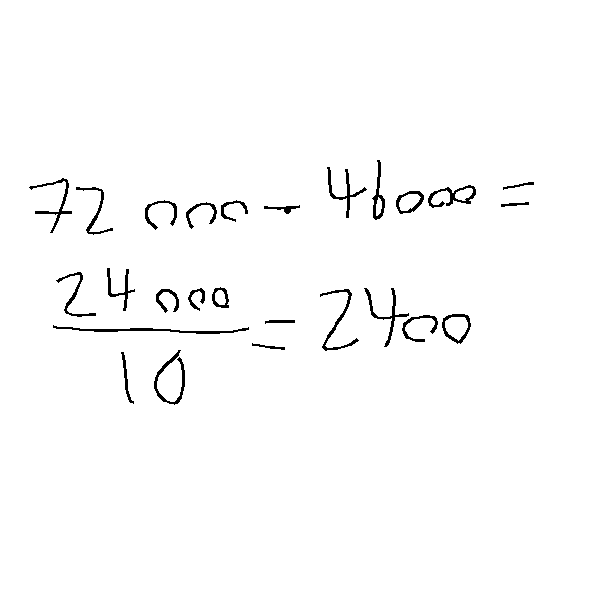 72 000 - 46000 =
24 000
10
= 2400